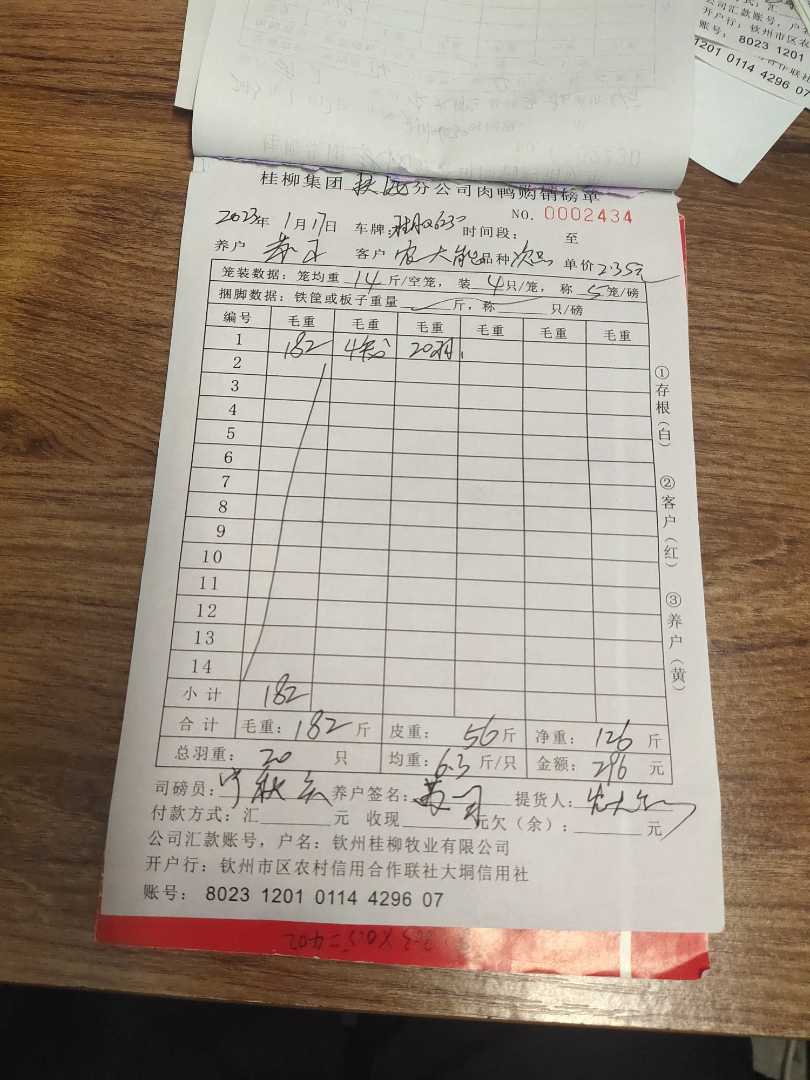 式：汇
公司汇款账号，户
开户行：钦州市区农
账号：8023 1201
合作联社
1201 0114 4296 07
桂柳集团 分公司肉鸭购销磅单
NO. 0002434
2023年 1月17日 车牌： 时间段： 至
养户 客户 农大 品种 次品 单价 2.35元
笼装数据：笼均重 14 斤/空笼，装 4 只/笼，称 5 笼/磅
捆脚数据：铁筐或板子重量 斤，称 只/磅
编号 毛重 毛重 毛重 毛重 毛重 毛重
1 182 4 20羽
2
3
4
5
6
7
8
9
10
11
12
13
14
小计 182
合计 毛重：182斤 皮重：56斤 净重：126斤
总羽重：20只 均重：6.3斤/只 金额：296元
司磅员： 养户签名： 提货人：
付款方式：汇 元 收现 元欠（余）： 元
公司汇款账号，户名：钦州桂柳牧业有限公司
开户行：钦州市区农村信用合作联社大垌信用社
账号：8023 1201 0114 4296 07
①存根（白）
②客户（红）
③养户（黄）